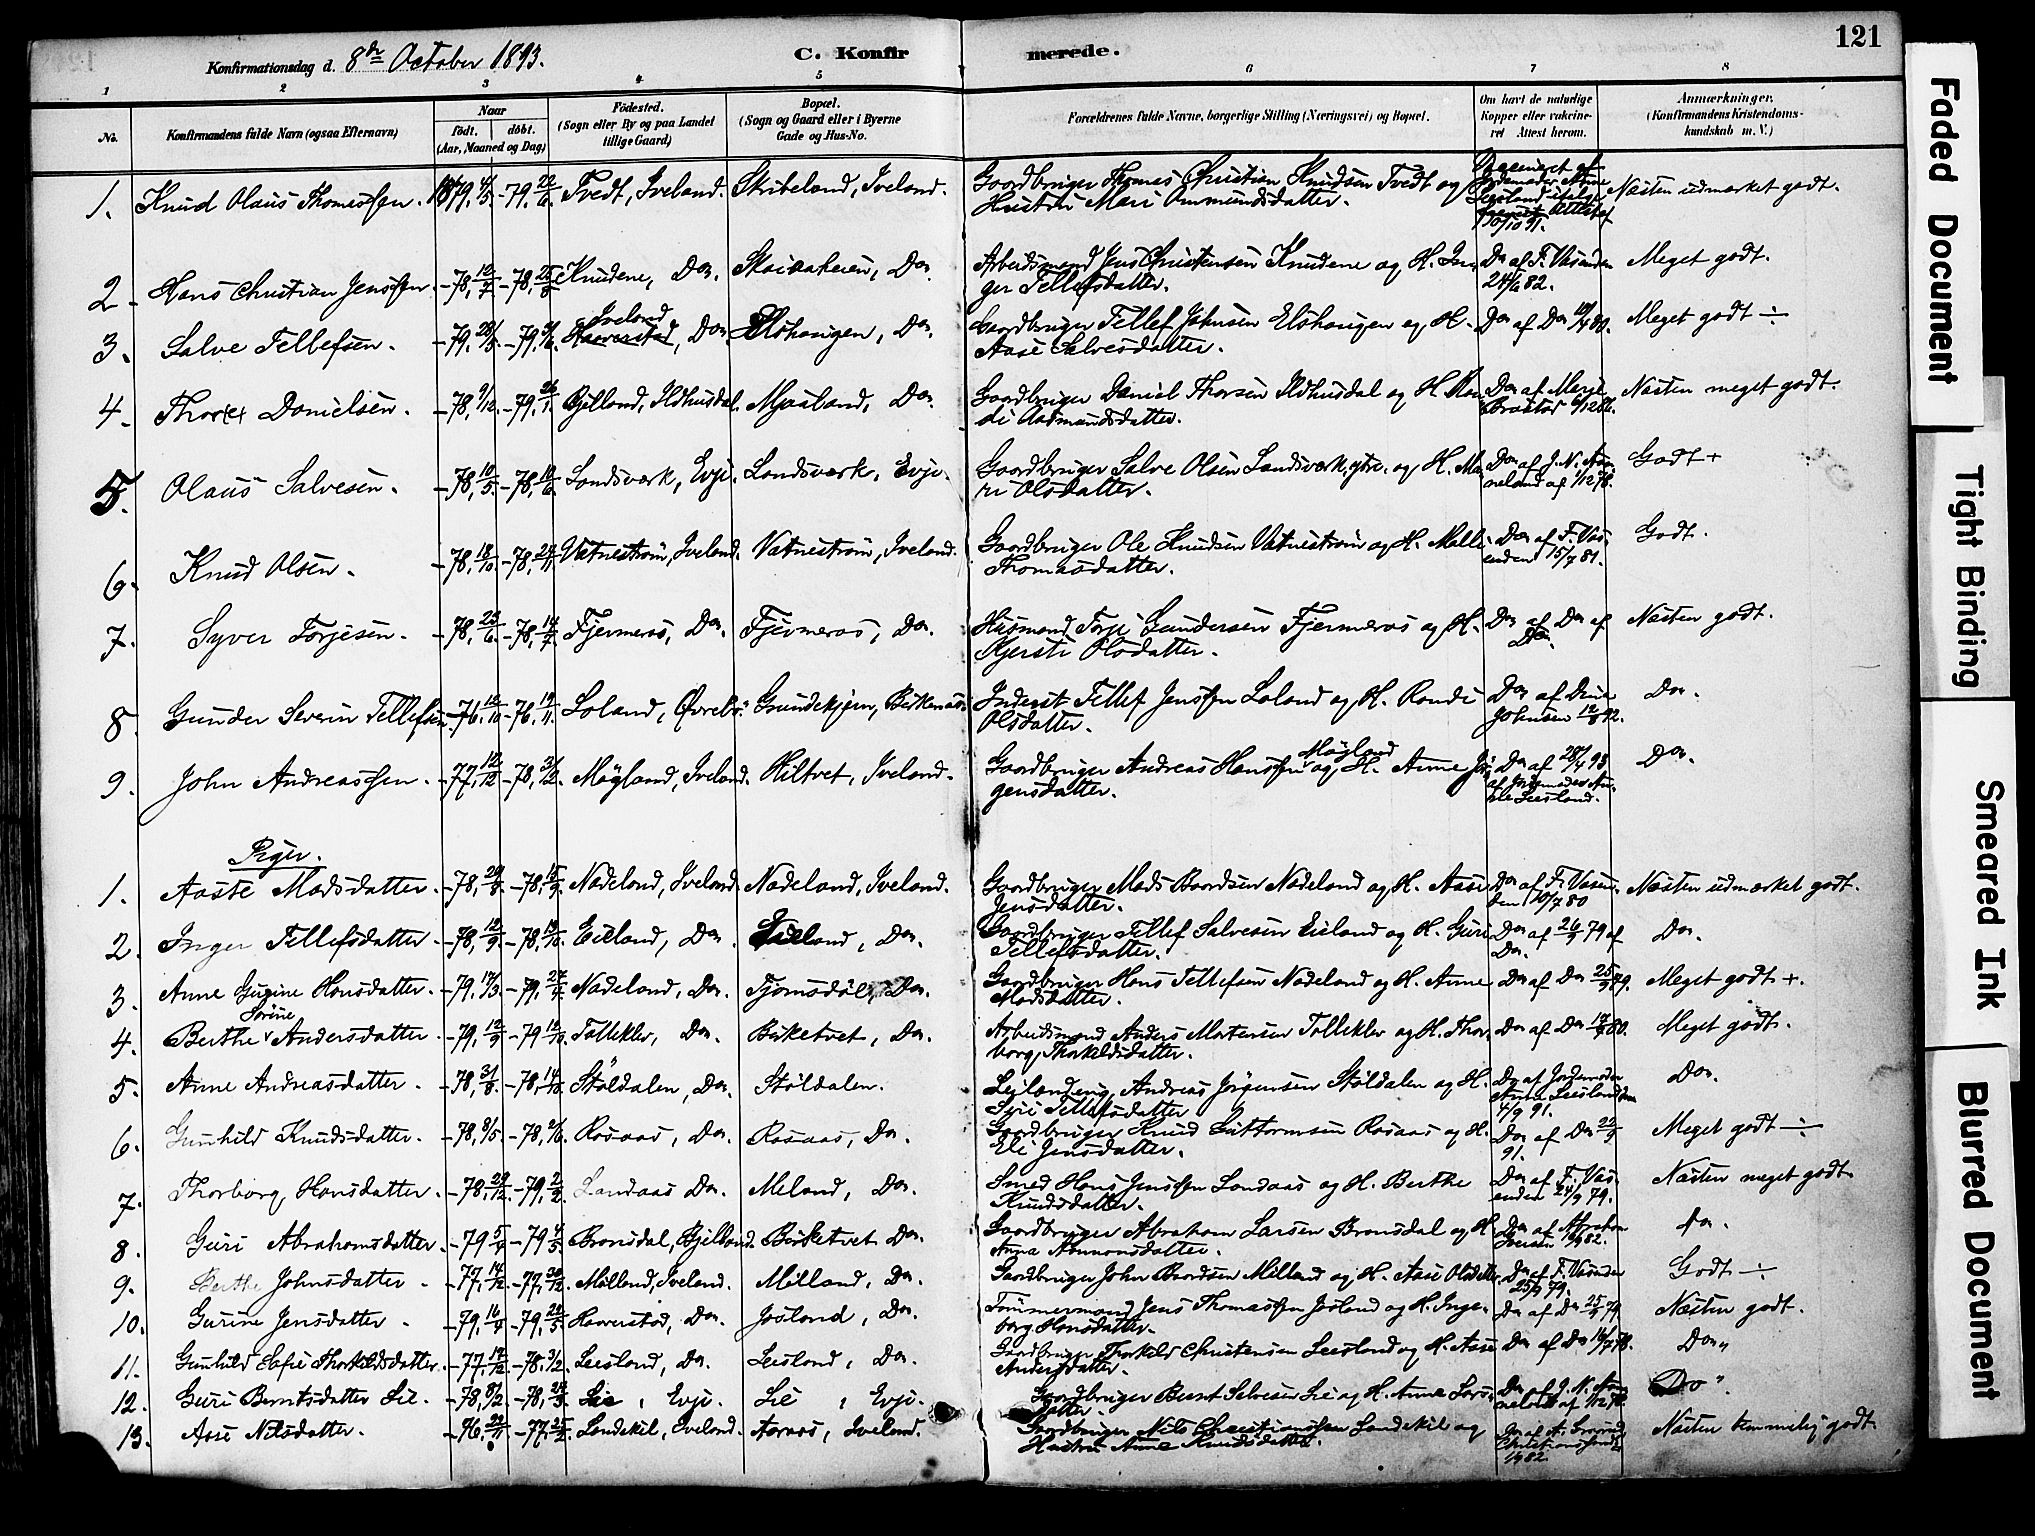 121
Konfirmationsdag d. 8de October 1893.
C. Konfir merede.
1 2 3 4 5 6 7 8
No. Konfirmandens fulde Navn (ogsaa Efternavn) Naar født. døbt. (Aar, Maaned og Dag) Fødested. (Sogn eller By og paa Landet tillige Gaard) Bopæl. (Sogn og Gaard eller i Byerne Gade og Hus-No. Forældrenes fulde Navne, borgerlige Stilling (Næringsvei) og Bopæl. Om havt de naturlige Kopper eller vakcineret Attest herom. Anmærkninger. (Konfirmandens Kristendomskundskab m. V.)
1. Knud Olaus Thomassen. 1879, 4/5 -79, 22/6 Tvedt, Iveland. Skribeland, Iveland. Gaardbruger Thomas Christian Knudsen Tvedt og Hustru Mari Ommundsdatter. Vaccineret af Jordemoder Leesland ifølge Attest af 10/10 91. Næsten udmærket godt.
2. Hans Christian Jenssen -78, 12/7 -78, 25/8 Knudene, Do. Skaiaaheien, Do. Arbeidsmand Jens Christensen Knudene og H. Inger Tellefsdatter. Do af F. Vasenden 24/6 82. Meget godt.
3. Salve Tellefsen. -79, -79, Iveland Haverstad, Do. Elshaugen, Do. Gaardbruger Tellef Johnsen Elshaugen og H. Aase Salvesdatter. Do af Do Meget godt ÷
4. Danielsen. -78, 9/10. -79, 26/1. Bjelland, Ildhusdal. Mjaaland, Do. Gaardbruger Daniel Thorsen Ildhusdal og H. Randi Aadmundsdatter. Do af Næsten meget godt.
5. Olaus Salvesen. -78, 10/5. -78, 10/6. Landsværk, Evje. Landsværk, Evje. Gaardbruger Salve Olsen Landsværk ytre. og H. Mari Olsdatter. Do af J. N. Aaneland af 1/12 78. Godt +
6. Knud Olsen. -78, 18/10. -78, 24/11. Vatnestrøm, Iveland. Vatnestrøm, Iveland. Gaardbruger Ole Knudsen Vatnestrøm og H. Malli Thomasdatter. Do af F. Vasenden 15/7 81. Godt.
7. Syver Torjesen. -78, 23/6. -78, 14/7. Fjermeros, Do. Fjermeros, Do. Husmand Torje Gundersen Fjermeros og H. Kjersti Olsdatter. Do af Do af Do. Næsten godt.
8. Gunder Severin Tellefsen -76, 12/10. -76, 19/11. Loland, Øvrebø. Grundekjøn, Birkenæs. Inderst Tellef Jenssen Loland og H. Randi Olsdatter. Do af Johnsen 12/8 92. Do.
9. John Andreassen. -77, 12/12 -78, 31/12 Møgland, Iveland. Hiltvet, Iveland. Gaardbruger Andreas Hanssen Møgland og H. Anne Jørgensdatter. Do af 28/4 93 af Jordemoder Leesland. Do.
Piger.
1. Aaste Madsdatter. -78, -78, 15/9. Nadeland, Iveland Nadeland, Iveland. Gaardbruger Mads Baardsen Nadeland og H. Aase Jensdatter. Do af F. Vasenden 10/7 80 Næsten udmærket godt.
2. Inger Tellefsdatter. -78, 12/9. -78, 13/10. Eieland, Do. Eieland, Do. Gaardbruger Tellef Salvesen Eieland og H. Guri Tellefsdatter. Do af 26/9 79 af Do. Do.
3. Anne Gurine Hansdatter. -79, 17/3. -79, 27/4. Nadeland, Do. Tjomsdøl, Do. Gaardbruger Hans Tellefsen Nadeland og H. Anne Madsdatter. Do af Do 25/9 79. Meget godt +.
4. Berthe Sørine Andersdatter. -79, 12/9. -79 12/10. Tolleklev, Do. Birketvet, Do. Arbeidsmand Anders Mortensen Tolleklev og H. Thorborg Thorkildsdatter. Do af Do Meget godt.
5. Anne Andreasdatter. -78, 31/8. -78, 14/10. Støldalen, Do. Støldalen. Leilænding Andreas Jørgensen Støldalen og H. Siri Tellefsdatter Do af Jordemoder Anna Leesland 4/9 91. Do.
6. Gunhild Knudsdatter. -78, 8/5 -78, 2/6. Rosaas, Do. Rosaas, Do. Gaardbruger Knud Guttormsen Rosaas og H. Eli Jensdatter. Do af Do 22/9 91. Meget godt ÷
7. Thorborg Hansdatter. -78, 29/12. -79, 2/2. Landaas Do. Meland, Do. Smed Hans Jenssen Landaas og H. Berthe Knudsdatter. Do af F. Vasenden 24/9 79. Næsten meget godt.
8. Guri Abrahamsdatter. -79 5/4 -79 4/5. Bronsdal, Bjelland. Birketvet Do. Gaardbruger Abraham Larsen Bronsdal og H. Anna Ammonsdatter. Do af Abraham Iversen 82. Do.
9. Berthe Johnsdatter. -77, 14/12 -77, 30/12. Milland, Iveland. Milland, Do. Gaardbruger John Baardsen Milland og H. Aase Olsdatter. Do af F. Vasenden 25/9 79. Godt ÷
10. Gurine Jensdatter. -79, 16/4 -79, 22/5. Haverstad, Do. Josland, Do. Tømmermand Jens Thomassen Josland og H. Ingeborg Hansdatter. Do af Do 25/9 79 Næsten godt.
11. Gunhild Sofie Thorkildsdatter. -77, 17/12 -78, 3/2 Leesland, Do. Leesland, Do. Gaardbruger Thorkild Christensen Leesland og H. Aase Andersdatter. Do af Do Do "
12. Guri Berntsdatter Lie. -78, 8/2 -78, Lie, Evje. Lie, Evje. Gaardbruger Bernt Salvesen Lie og H. Anne Larsdatter. Do af J. N. Aaneland af 1/12 78. Do".
13. Aase Nilsdatter. -76, 22/11 -77, 25/2 Landekil, Iveland. Aaraas, Iveland. Gaardbruger Nils Christiansen Landekil og Hustru Anne Knudsdatter. Næsten temmelig godt.
Faded Document
Tight Binding
Smeared Ink
Blurred Document